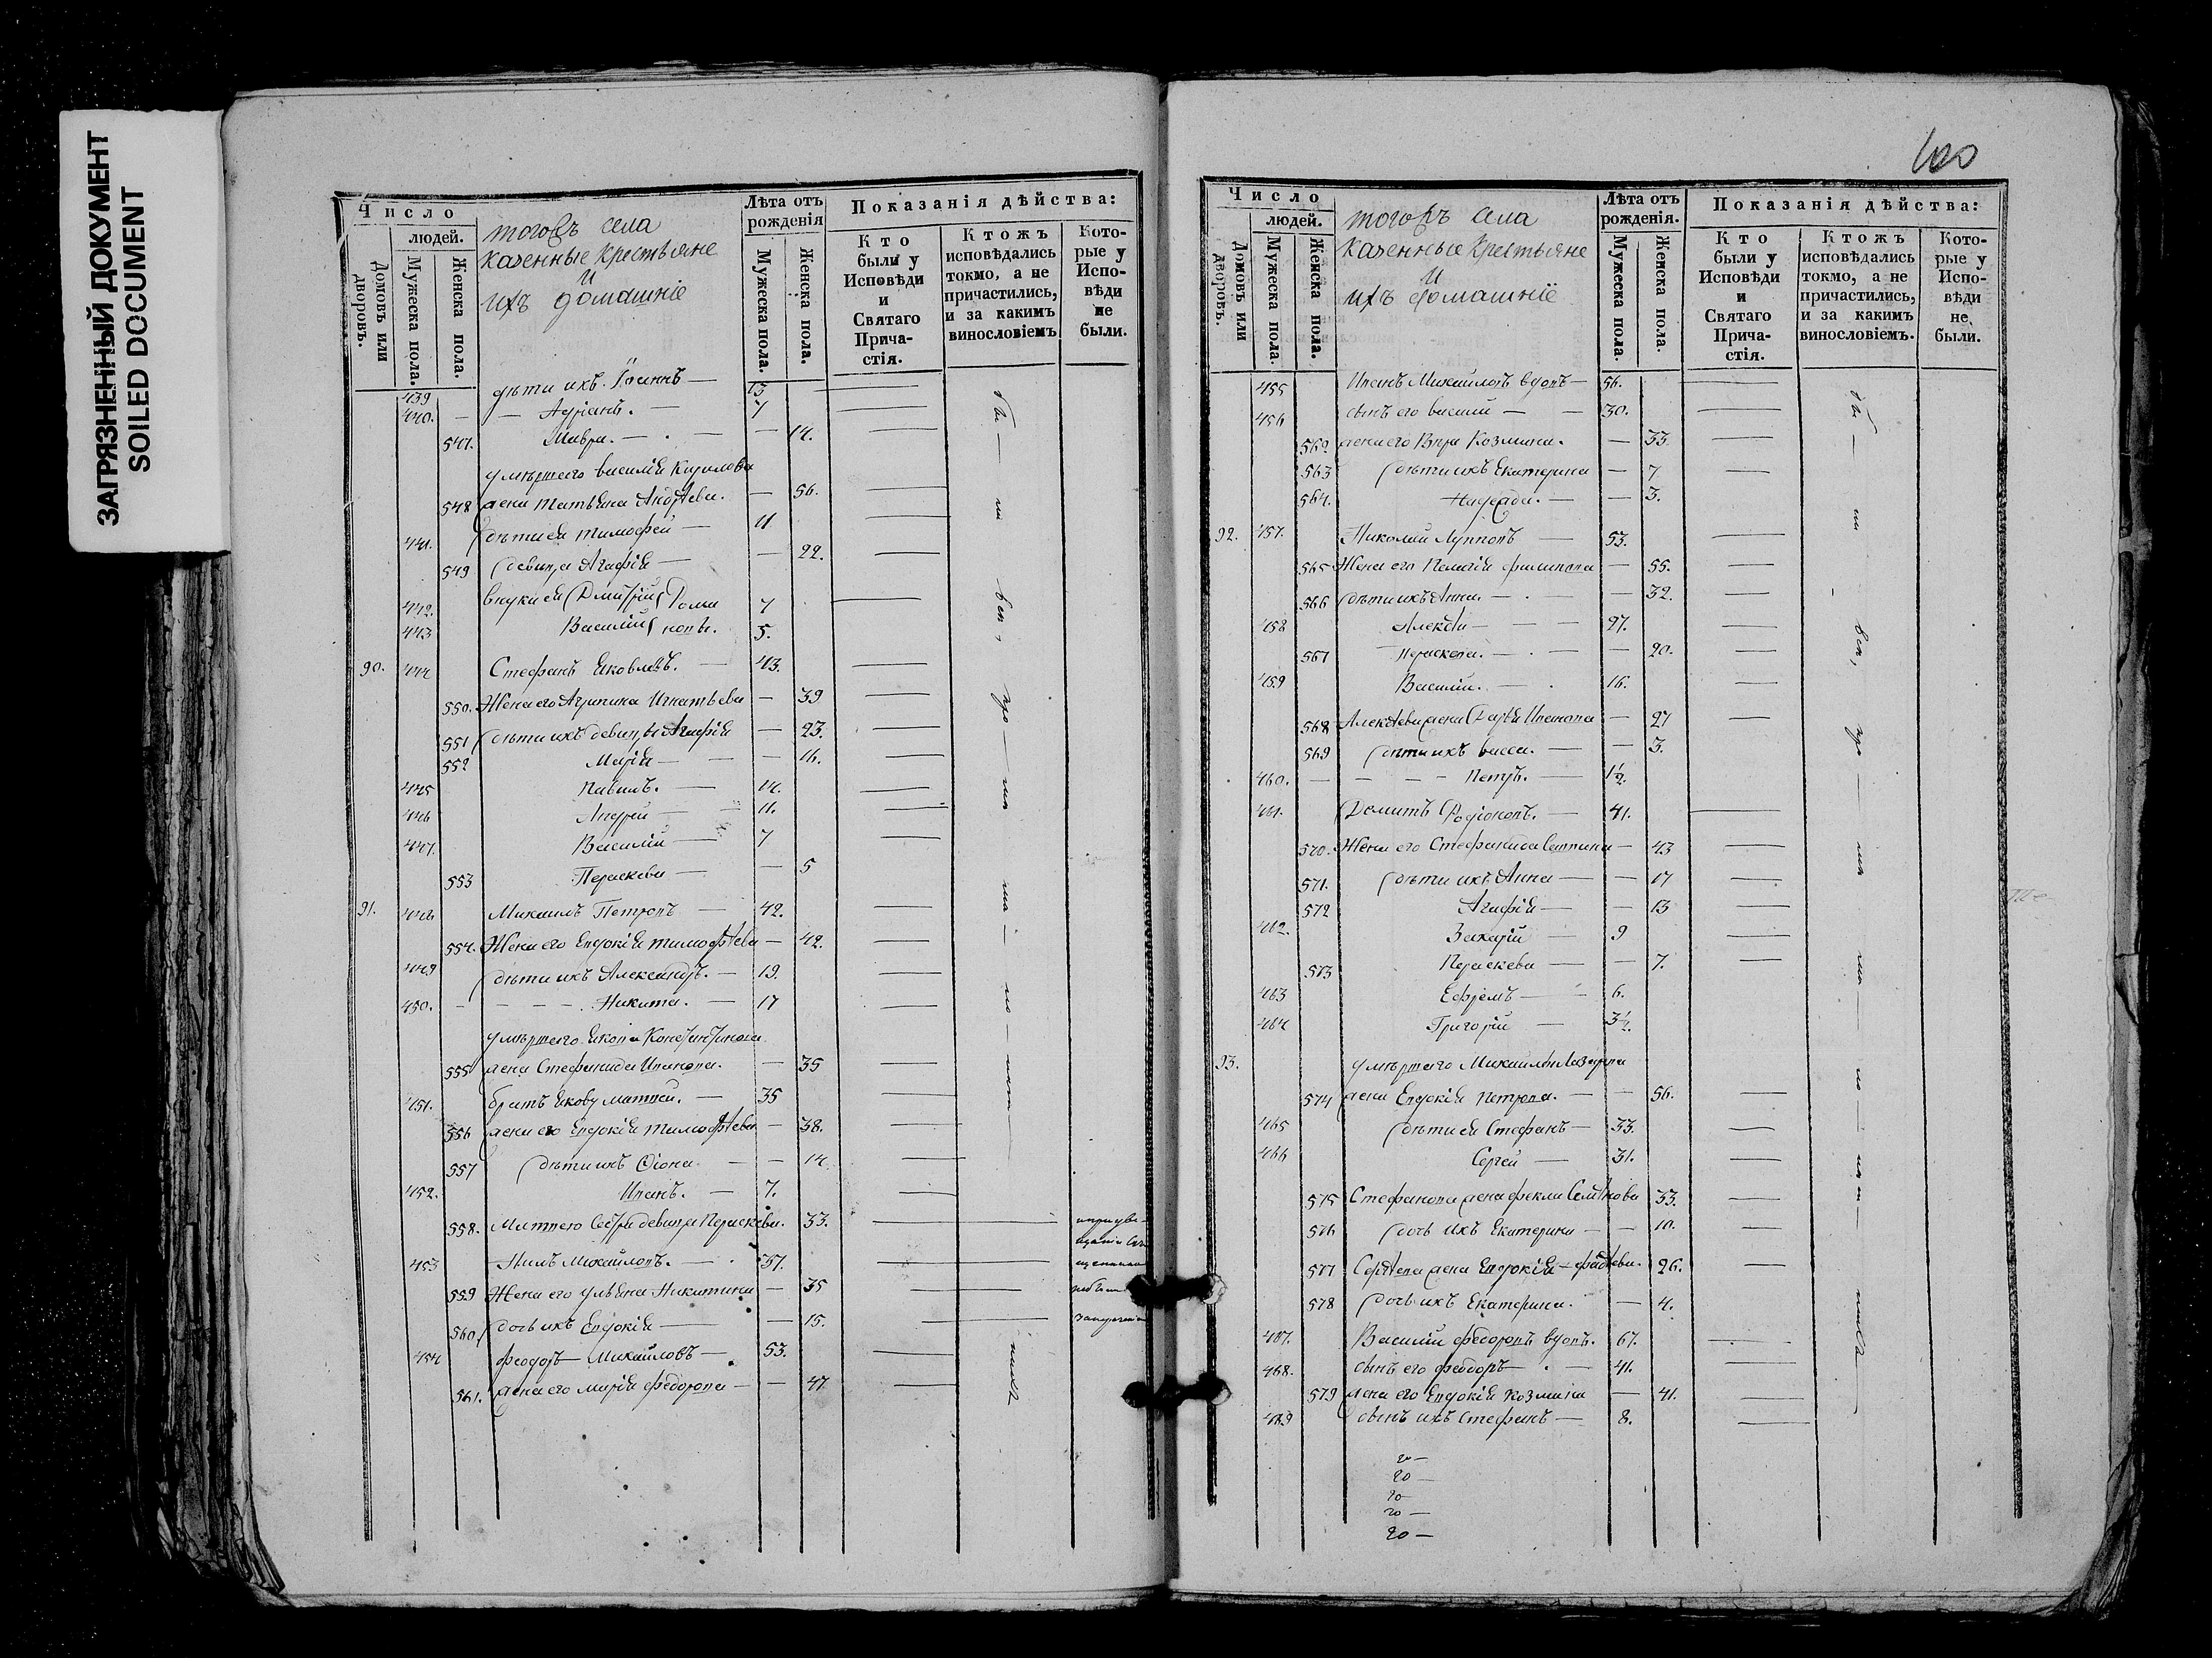 ЗАГРЯЗНЕННЫЙ ДОКУМЕНТ
SOILED DOCUMENT
Число
людей.
Домовъ или дворовъ.
Мужеска пола.
Женска пола.
тогожъ села
казенные крестьяне
и
ихъ домашніе
Лѣта отъ рожденія
Мужеска пола.
Женска пола.
Показанія дѣйства:
Кто были у Исповѣди и Святаго Прича- стія.
Ктожъ исповѣдались токмо, а не причастились, и за какимъ винословіемъ
Кото- рые у Испо- вѣди не были.
439 дѣти ихъ Іоаннъ — 13
440. — Адріанъ. — 7
547. Мавра. — 14.
умершего василія Кирилова
548 жена Татьяна Андреева. — 56.
441. дѣти ея тимофей — 11
549 девица Агафія — 22.
442. внуки ея Дмитрій 7
443 Василій 5.
90. 444 Стефанъ Яковлевъ. — 43.
550. Жена его Агрипина Игнатьева — 39
551 дѣти ихъ девицы Агафія — 23.
552 Марія — 16.
445 Павелъ. — 14.
446 Андрей — 11.
447. Василій — 7
553 Параскева — 5
91. 448 Михаилъ Петровъ — 42.
554. Жена его Евдокія тимофѣева — 42.
449 дѣти ихъ Александръ. — 19.
450. — Никита. — 17
умершего Якова Константинова
555 жена Стефанида Иванова. — 35
451. братъ Якову матвей. — 35
556 жена его Евдокія тимофѣева — 38.
557 дѣти ихъ Фіона — 14.
452. Иванъ. — 7.
558. Матвею сестра девица Параскева. 33.
453 Нилъ Михайловъ. — 37.
559 Жена его ульяна Никитина — 35
560 дочь ихъ Евдокія — 15.
454 феодоръ Михайловъ — 53.
561. жена его марія федорова — 47
100
Число
людей.
Домовъ или дворовъ.
Мужеска пола.
Женска пола.
тогожъ села
казенные крестьяне
и
ихъ домашніе
Лѣта отъ рожденія.
Мужеска пола.
Женска пола.
Показанія дѣйства:
Кто были у Исповѣди и Святаго Прича- стія.
Ктожъ исповѣдались токмо, а не причастились, и за какимъ винословіемъ.
Кото- рые у Испо- вѣди не были.
455 Иванъ Михайловъ вдовъ — 56.
456 сынъ его василій — 30.
562 жена его Вѣра Козмина. — 33.
563 дѣти ихъ Екатерина — 7
564. Надежда. — 3.
92. 457. Николай Лупповъ — 53.
565 Жена его Пелагія филипова — 55.
566 дѣти ихъ Анна. — 32.
458 Алексѣй — 27.
567 Параскева. — 20.
459 Василій. — 16.
568 Алексѣева жена Дарья Иванова — 27
569 дѣти ихъ васса. — 3.
460. — Петръ. — 1½.
461. Домитъ Родіоновъ. — 41.
570. Жена его Стефанида Саввина — 43
571. дѣти ихъ Анна — 17
572 Агафія — 13
462. Захарій — 9
573 Параскева — 7.
463 Ефремъ — 6.
464 Григорій — 3½.
93. умершаго Михаила Лазарева
574 жена Евдокія Петрова. — 56.
465 дѣти ея Стефанъ — 33.
466 Сергей — 31.
575 Стефанова жена фекла Семѣнова 33.
576 дочь ихъ Екатерина — 10.
577 Сергѣева жена Евдокія фадѣева. 26.
578 дочь ихъ Екатерина. — 4.
467. Василій федоровъ вдовъ. 67.
468. сынъ его феодоръ — 41.
579 жена его Евдокія Козмина — 41.
469 сынъ ихъ Стефанъ — 8.